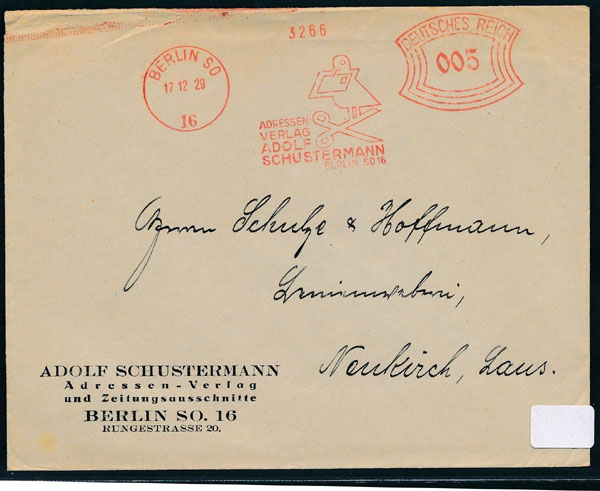 3266
DEUTSCHES REICH
005
BERLIN SO
17 12 29
16
ADRESSEN-
VERLAG
ADOLF
SCHUSTERMANN
BERLIN SO 16
Herrn Schulze & Hoffmann,
Leinenweberei,
Neukirch, Laus.
ADOLF SCHUSTERMANN
Adressen-Verlag
und Zeitungsausschnitte
BERLIN SO. 16
RUNGESTRASSE 20.